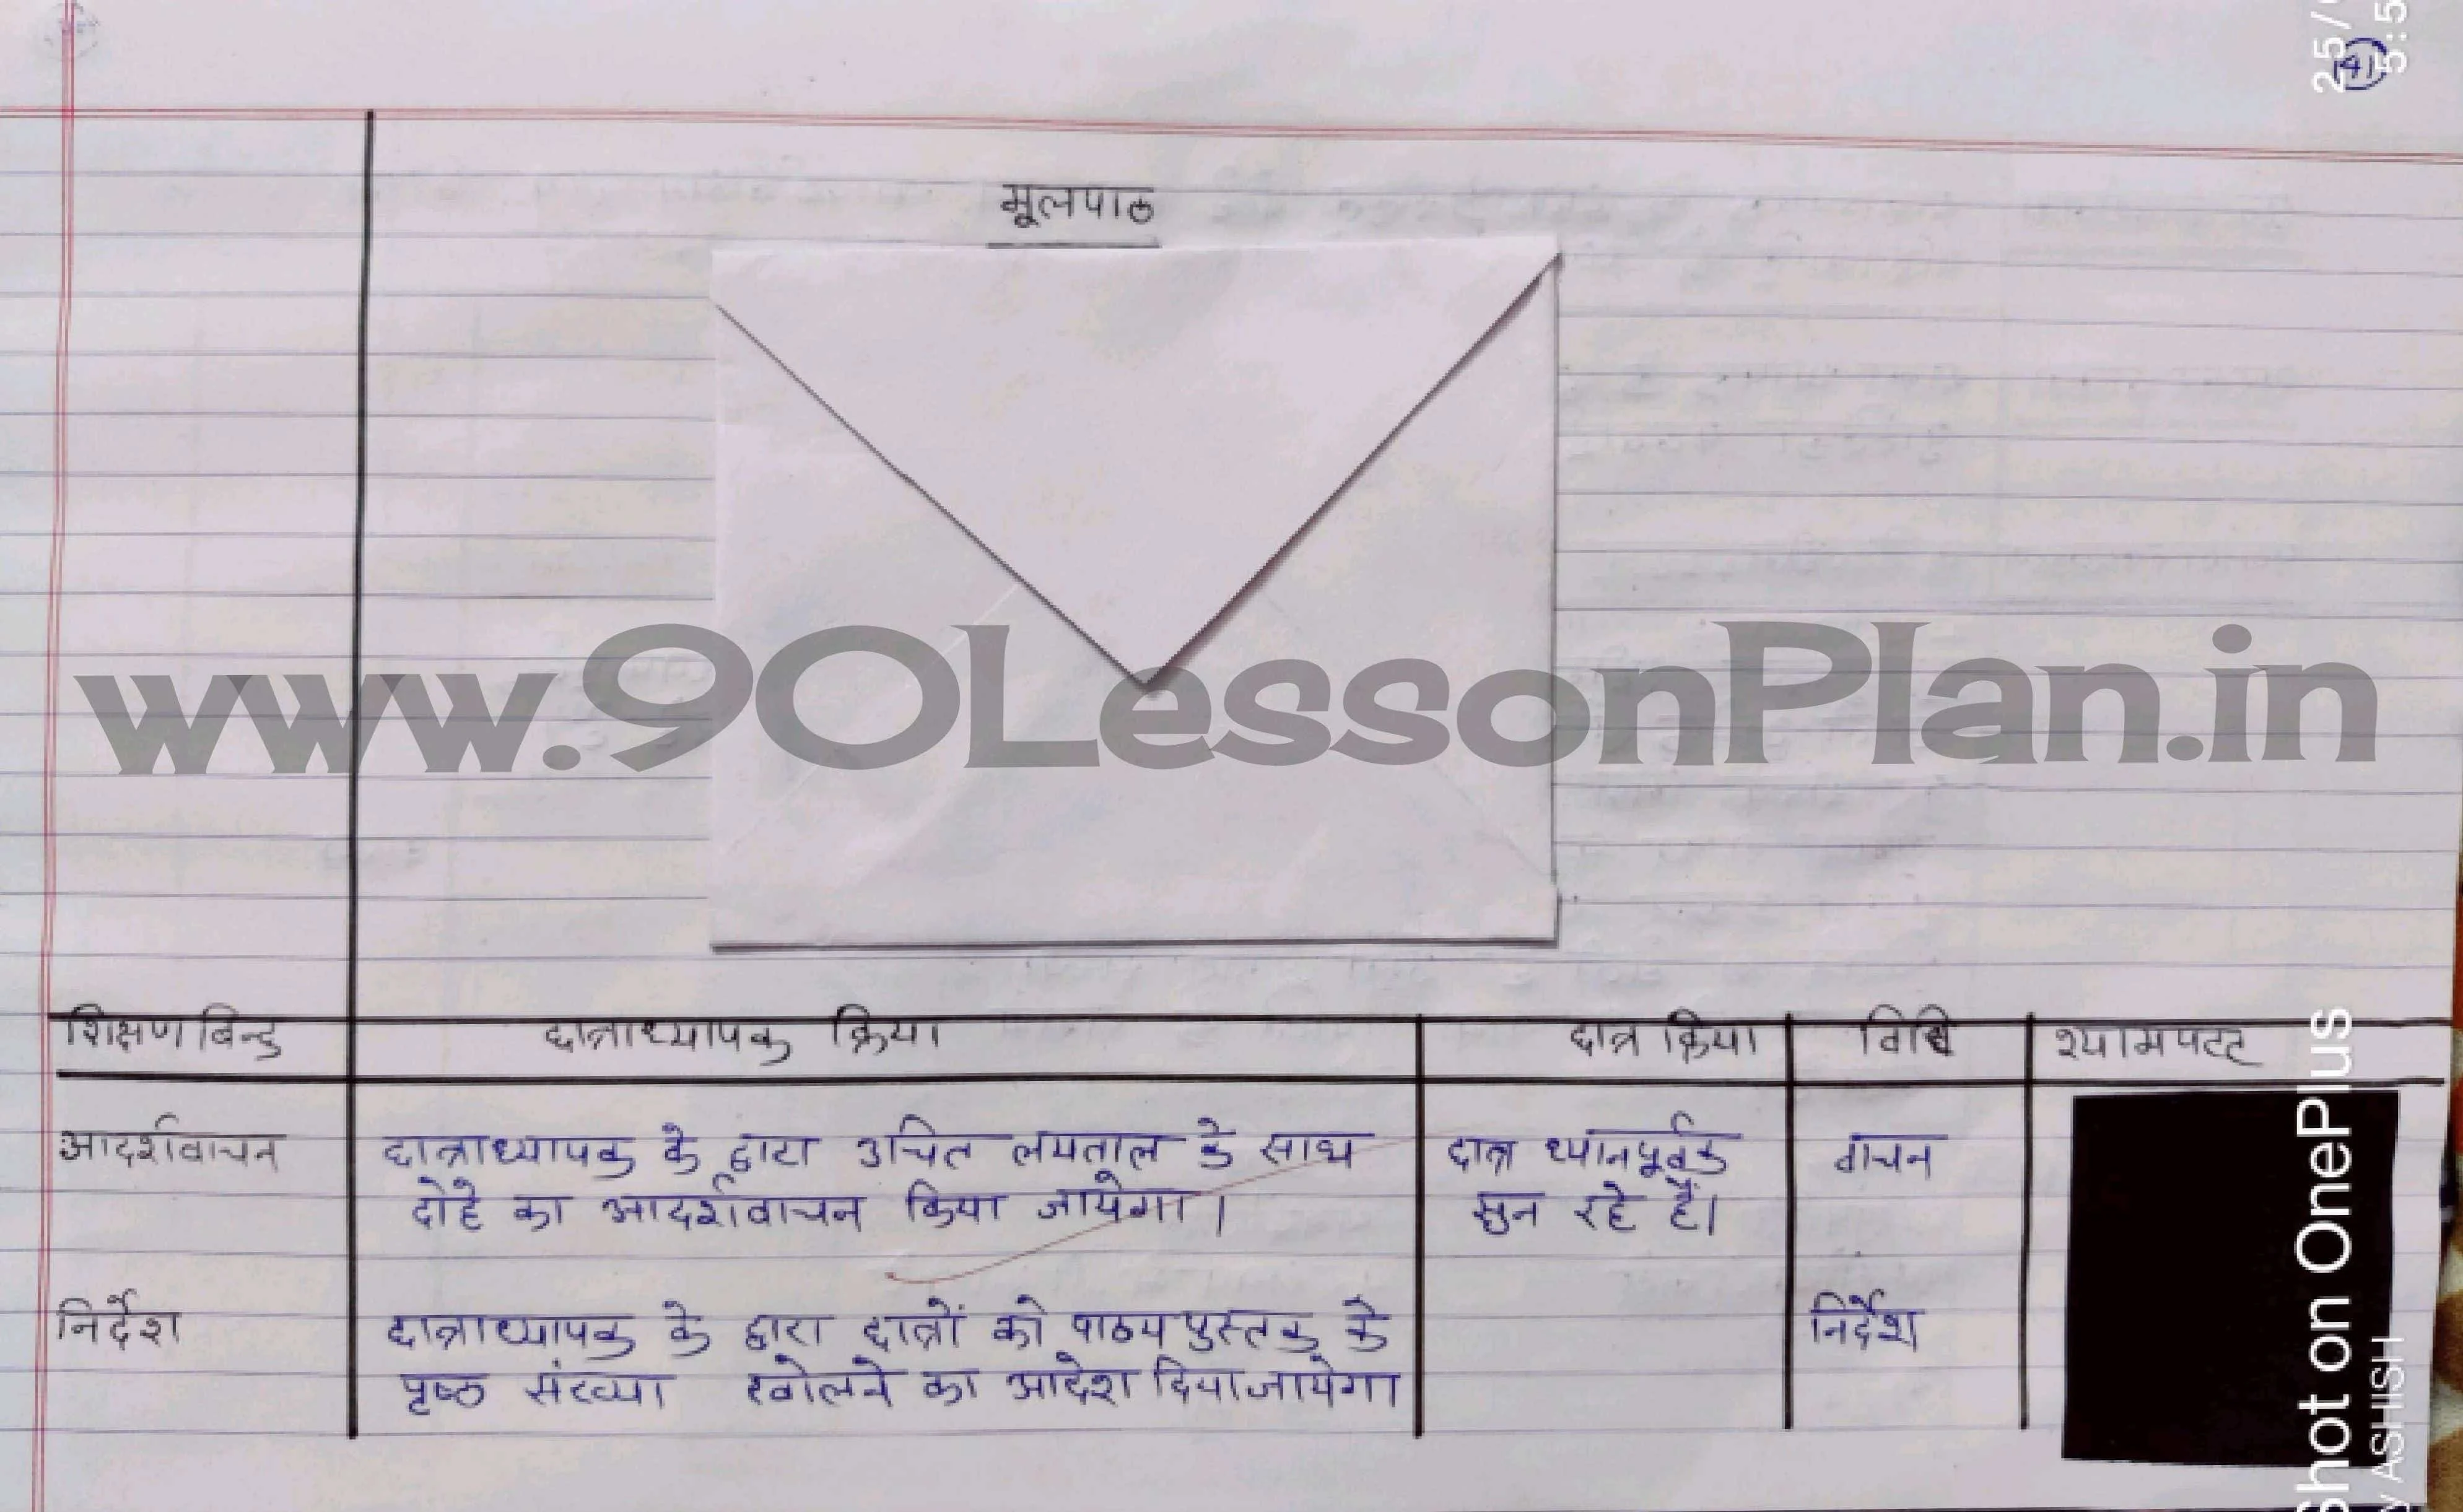 25/
5:5
41
मूलपाठ
www.90LessonPlan.in
शिक्षण बिन्दु छात्राध्यापक क्रिया छात्र क्रिया विधि श्यामपटट
आदर्शवाचन छात्राध्यापक के द्वारा उचित लयताल के साथ छात्र ध्यानपूर्वक वाचन
दोहे का आदर्शवाचन किया जायेगा। सुन रहे हैं।
निर्देश छात्राध्यापक के द्वारा छात्रों को पाठयपुस्तक के निर्देश
पृष्ठ संख्या खोलने का आदेश दिया जायेगा
hot on OnePlus
y ASHISH